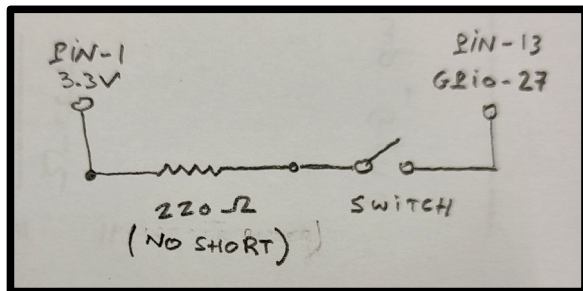 PIN-1
3.3V
PIN-13
GPio-27
220 Ω
(NO SHORT)
SWITCH